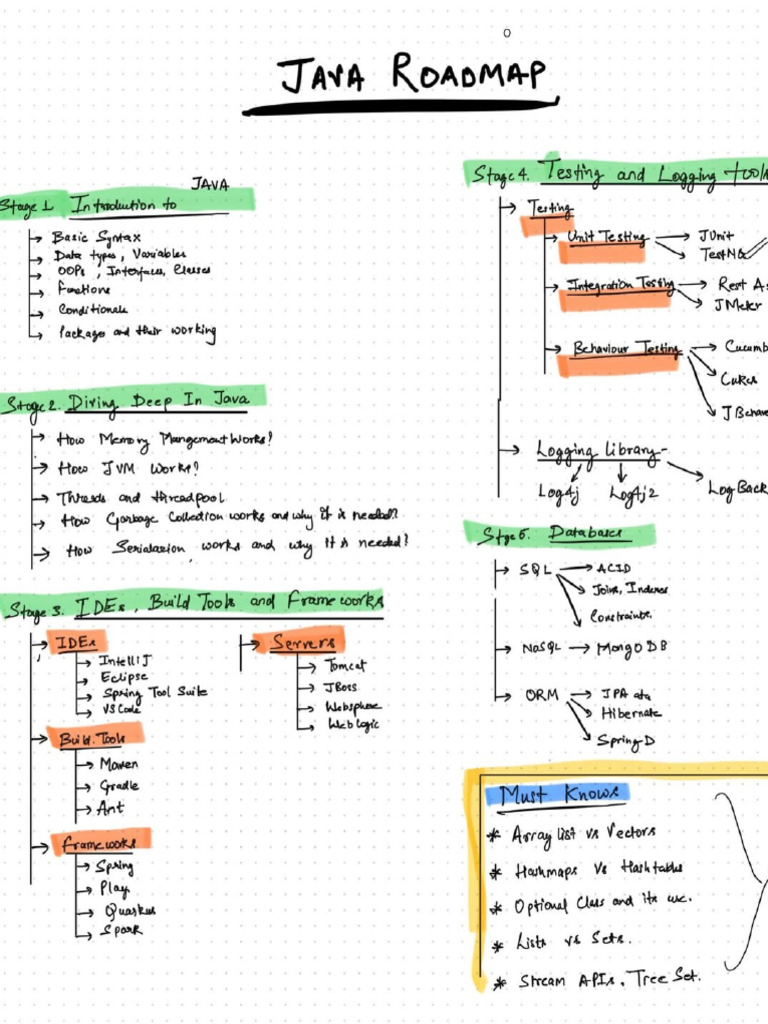 JAVA ROADMAP
Stage 1. Introduction to JAVA
Basic Syntax
Data types, Variables
OOPs, Interfaces, Classes
Functions
Conditionals
Packages and their working
Stage 2. Diving Deep In Java
How Memory Mangement Works?
How JVM Works?
Threads and threadpool
How Garbage Collection works and why it is needed?
How Serialazion works and why it is needed?
Stage 3. IDEs, Build Tools and Frameworks
IDEs
IntelliJ
Eclipse
Spring Tool Suite
VS Code
Build Tools
Maven
Gradle
Ant
Frameworks
Spring
Play
Quarkus
Spark
Servers
Tomcat
JBoss
Websphere
Web logic
Stage 4. Testing and Logging tools
Testing
Unit Testing
JUnit
TestNG
Integration Testing
Rest As
JMeter
Behaviour Testing
Cucumb
Cukes
JBehave
Logging library
Log4j
Log4j2
LogBack
Stge 5. Databases
SQL
ACID
Joins, Indexes
Constraints.
NoSQL
MongoDB
ORM
JPA ata
Hibernate
Spring D
Must Knows
* Array list vs Vectors
* Hashmaps Vs Hashtables
* Optional Class and its use.
* Lists vs Sets.
* Stream APIs, Tree Set.